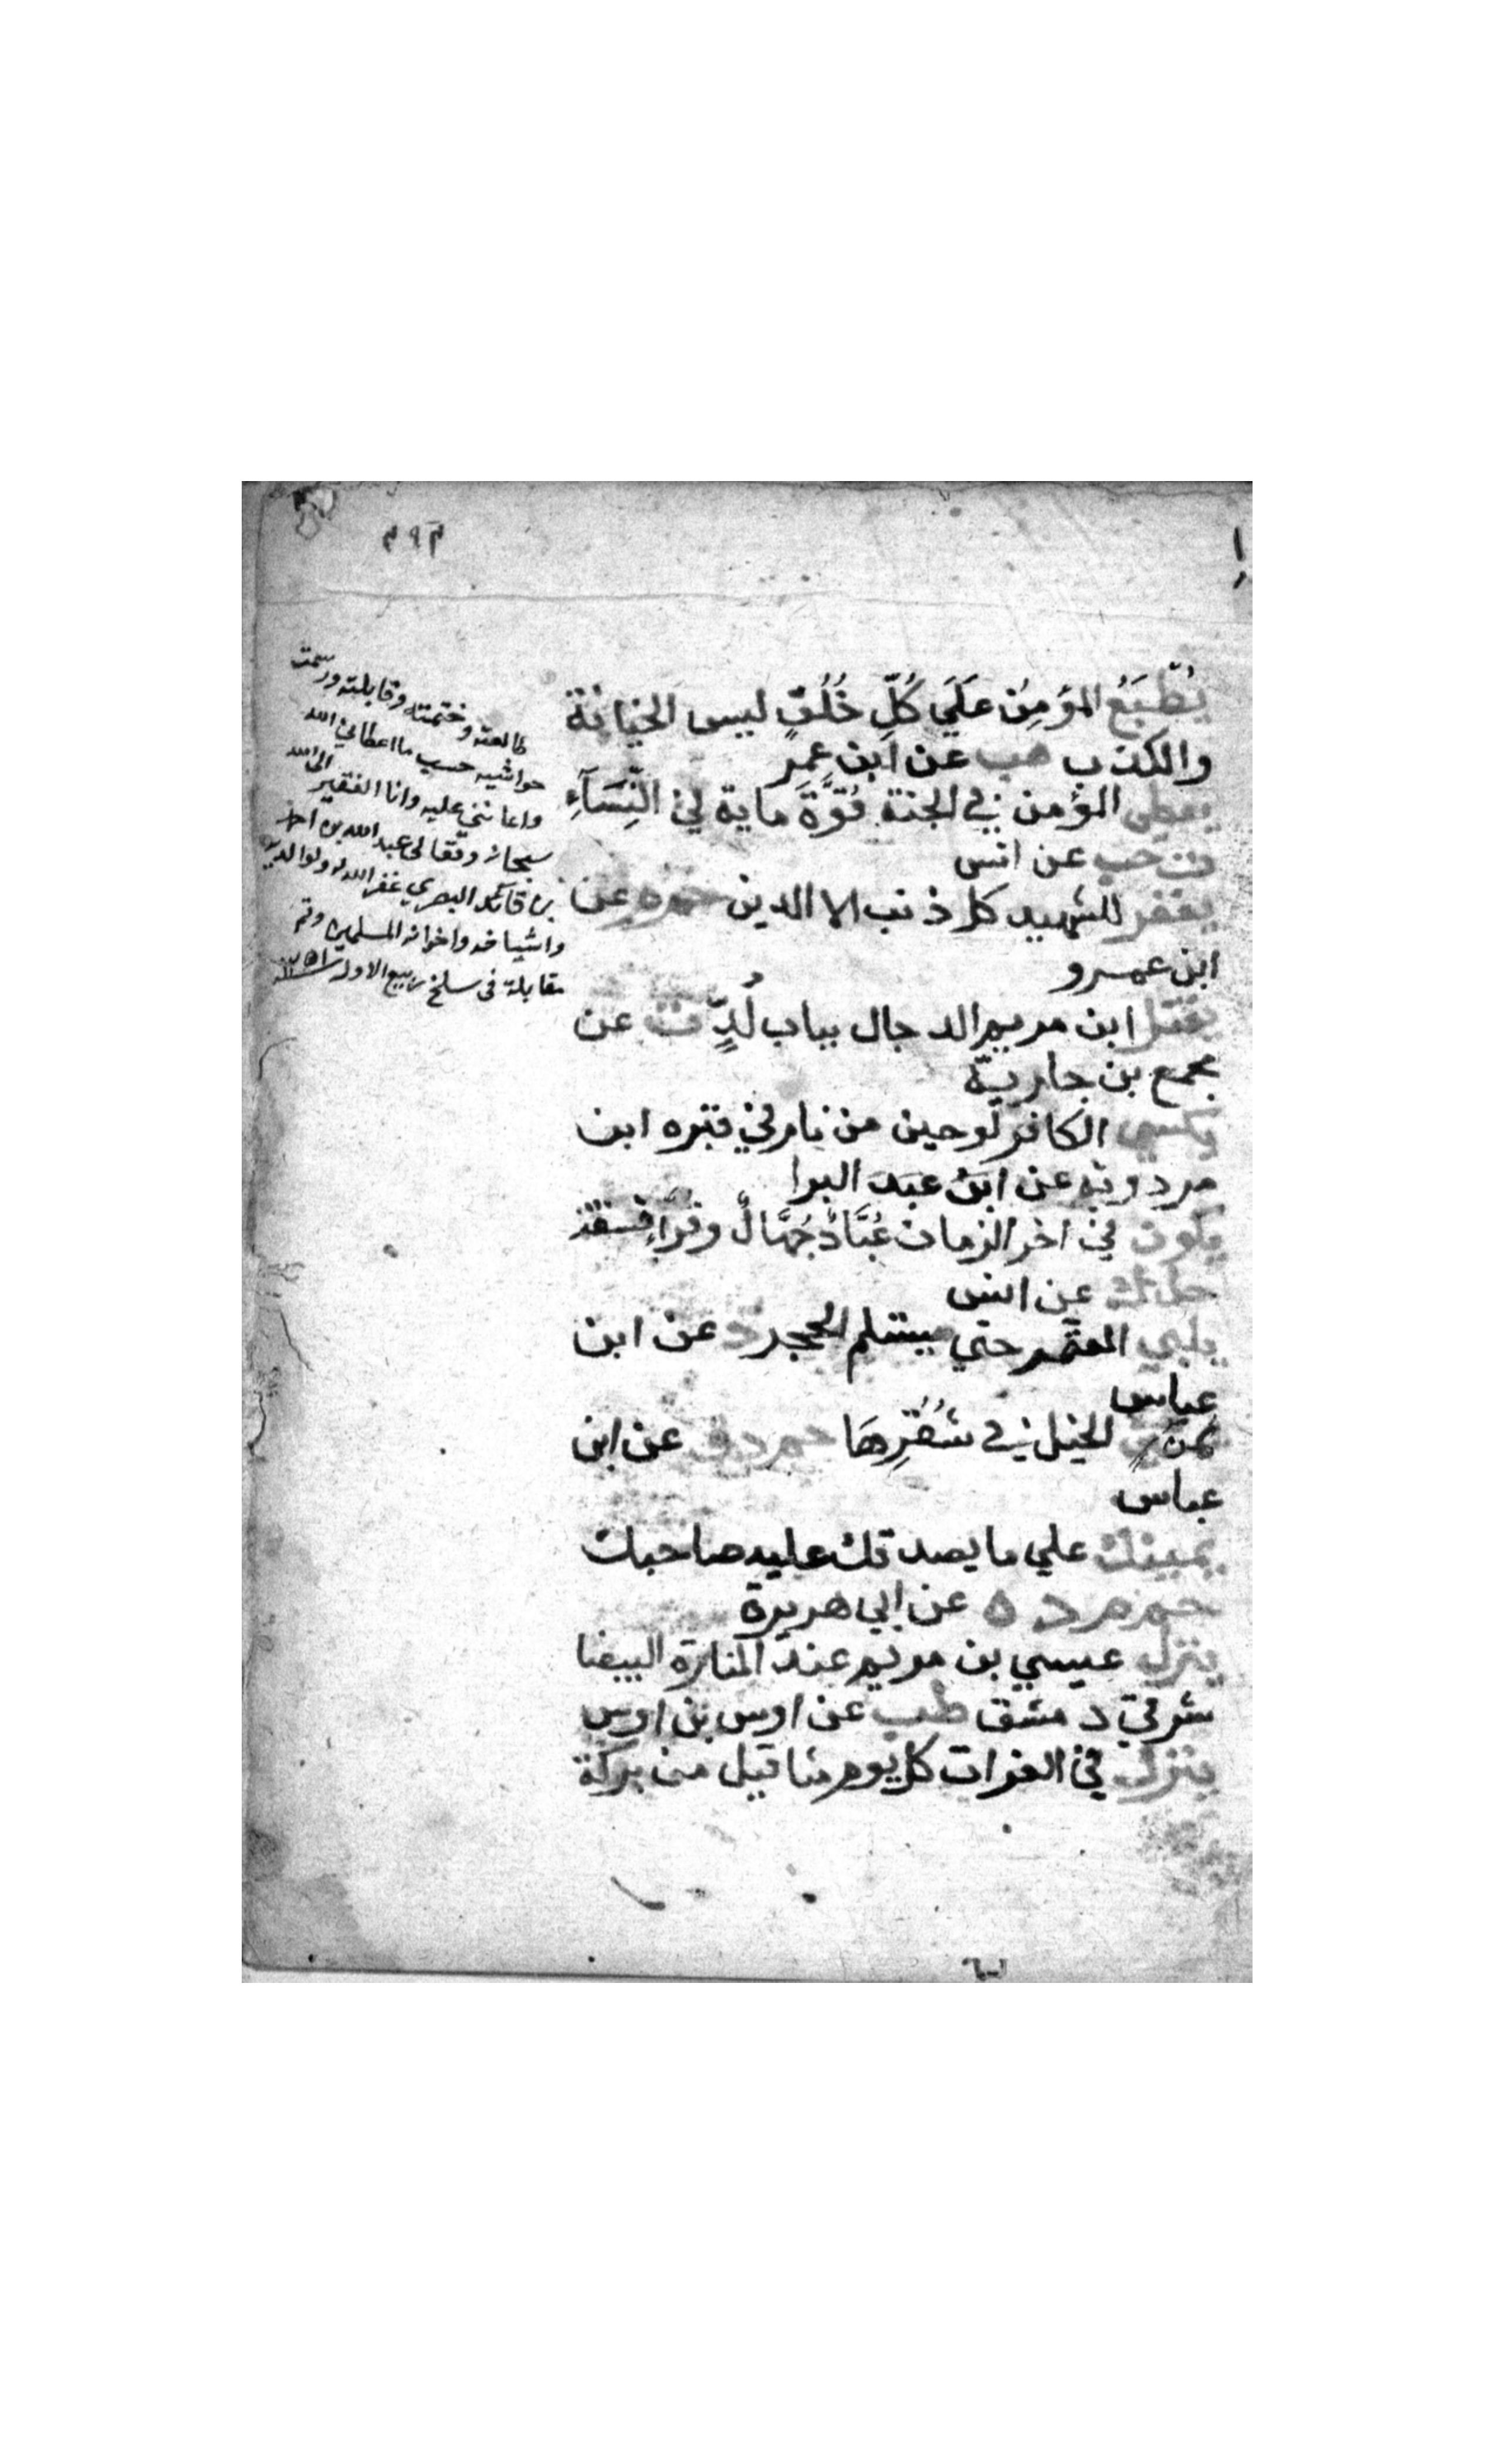 ٣٩٣
يُطْبَعُ المؤمِنُ عَلَي كُلِّ خُلُقٍ ليس الخيانة
والكذب هب عن ابن عمر
يعطي المؤمن في الجنة قُوَّةَ ماية في النِّسَآءِ
ت حب عن انس
يغفر للشهيد كل ذنب الا الدين حم م عن
ابن عمرو
يقتل ابن مريم الدجال بباب لُدٍّ ت عن
مجمع بن جارية
يكسي الكافر لوحين من نار في قبره ابن
مردويه عن ابن عبد البرا
يكون في اخر الزمان عُبَّادٌ جُهَّالٌ وقراء فسقة
حل ك عن انس
يلبي المعتمر حتي يستلم الحجر د عن ابن
عباس
يمن الخيل في شُقْرِهَا حم د ت عن ابن
عباس
يمينك علي ما يصدقك عليه صاحبك
حم م د ه عن ابي هريرة
ينزل عيسي بن مريم عند المنارة البيضا
شرقي دمشق طب عن اوس بن اوس
ينزل في الفرات كل يوم مثاقيل من بركة
طالعته وختمته وقابلته ورسمت
حواشيه حسب ما اعطاني الله
واعانني عليه وانا الفقير الى الله
سبحانه وتعالى عبد الله بن احمد
بن قائد البصري غفر الله له ولوالديه
واشياخه واخوانه المسلمين وتم
مقابلة في سلخ ربيع الاول سنة